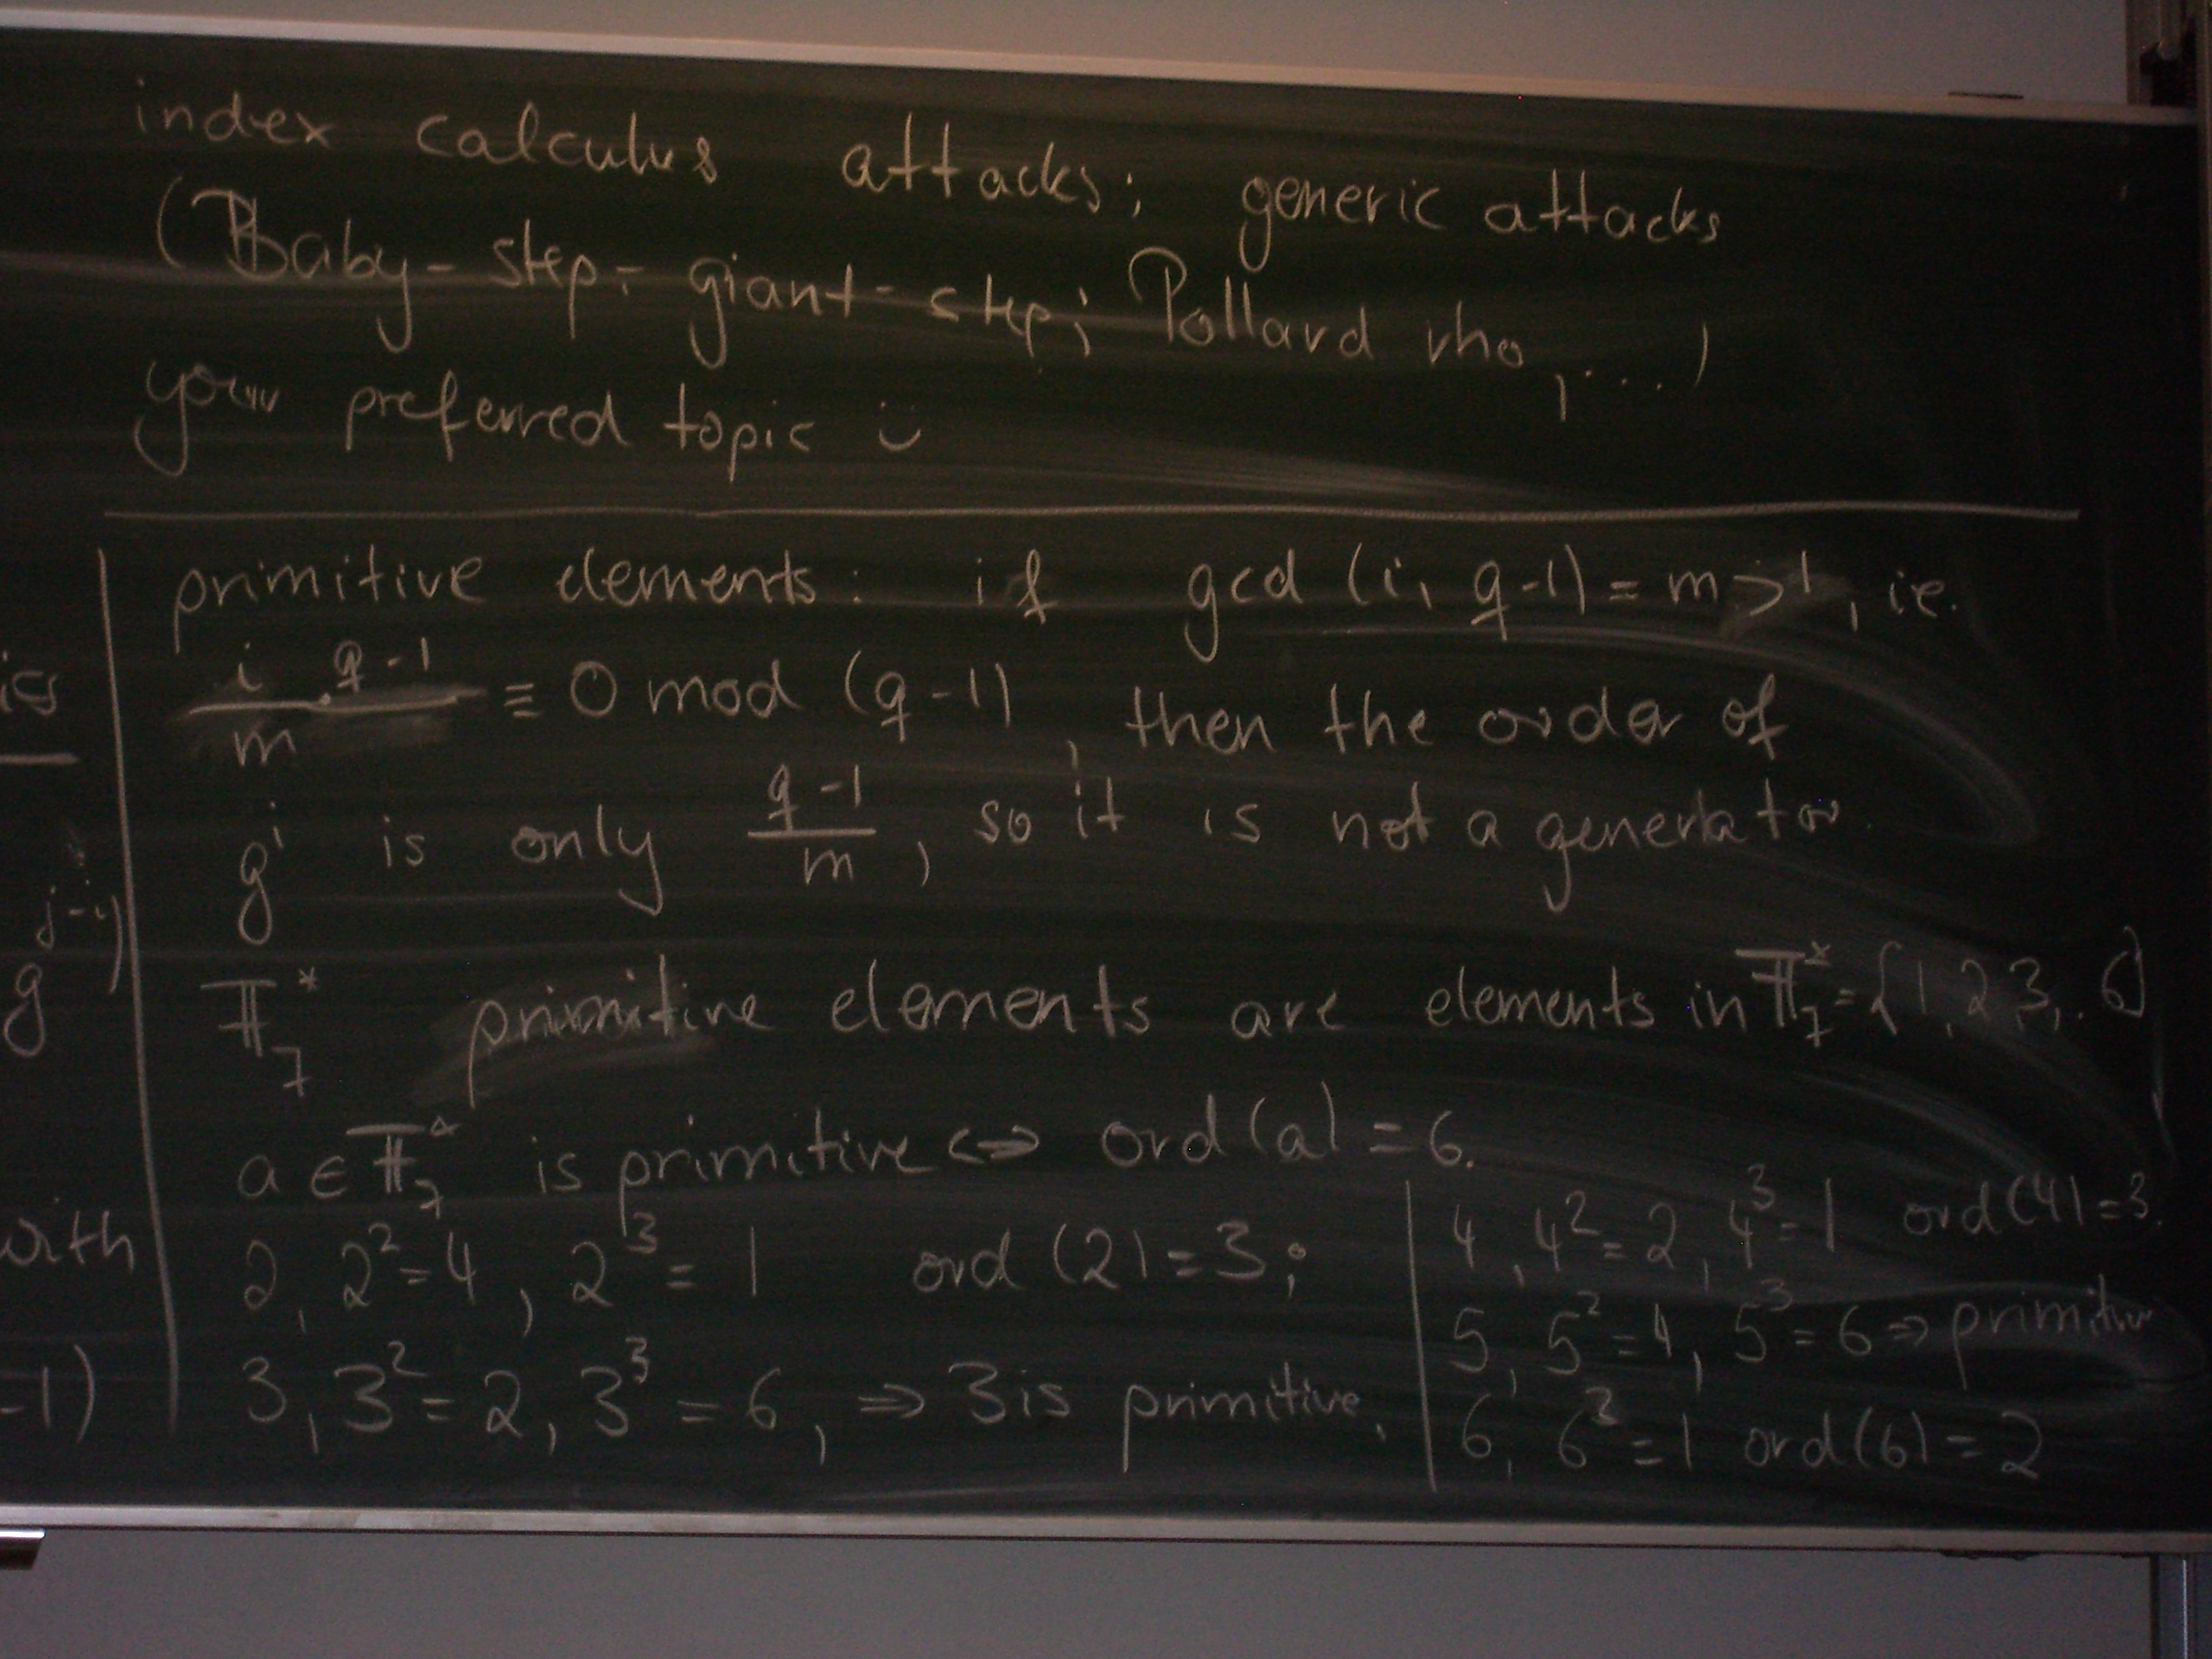 index calculus attacks; generic attacks
(Baby-step-giant-step; Pollard rho, ....)
your preferred topic ü
primitive elements: if gcd (i, q-1) = m > 1, ie.
i/m · q-1 ≡ 0 mod (q-1), then the order of
gⁱ is only (q-1)/m, so it is not a generator
𝔽₇* primitive elements are elements in 𝔽₇* = {1,2,3,..6}
a ∈ 𝔽₇* is primitive ⇔ ord(a) = 6.
2, 2² = 4, 2³ = 1 ord (2) = 3;
3, 3² = 2, 3³ = 6, ⇒ 3 is primitive.
4, 4² = 2, 4³ = 1 ord(4) = 3.
5, 5² = 4, 5³ = 6 ⇒ primitive
6, 6² = 1 ord(6) = 2
ics
g^(j-i))
with
-1)